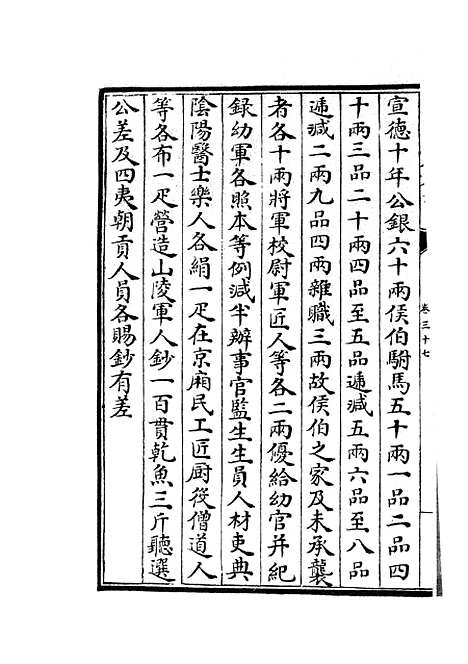 卷三十七
宣德十年公銀六十兩侯伯駙馬五十兩一品二品四
十兩三品二十兩四品至五品遞減五兩六品至八品
遞減二兩九品四兩雜職三兩故侯伯之家及未承襲
者各十兩將軍校尉軍匠人等各二兩優給幼官并紀
錄幼軍各照本等例減半辦事官監生生員人材吏典
陰陽醫士樂人各絹一疋在京廂民工匠厨役僧道人
等各布一疋營造山陵軍人鈔一百貫乾魚三斤聽選
公差及四夷朝貢人員各賜鈔有差